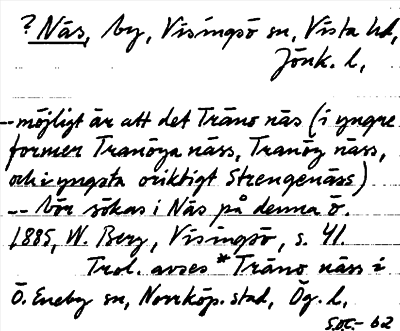 ? Näs, by, Visingsö sn, Vista hd,
Jönk. l.
-- möjligt är att det Träno näs (i yngre
former Tranöya näss, Tranöy näss,
och i yngsta oriktigt Strengenäss)
-- bör sökas i Näs på denna ö.
1885, W. Berg, Visingsö, s. 41.
Trol. avses * Träno näss i
Ö. Eneby sn, Norrköp. stad, Ög. l.
SOC - 62